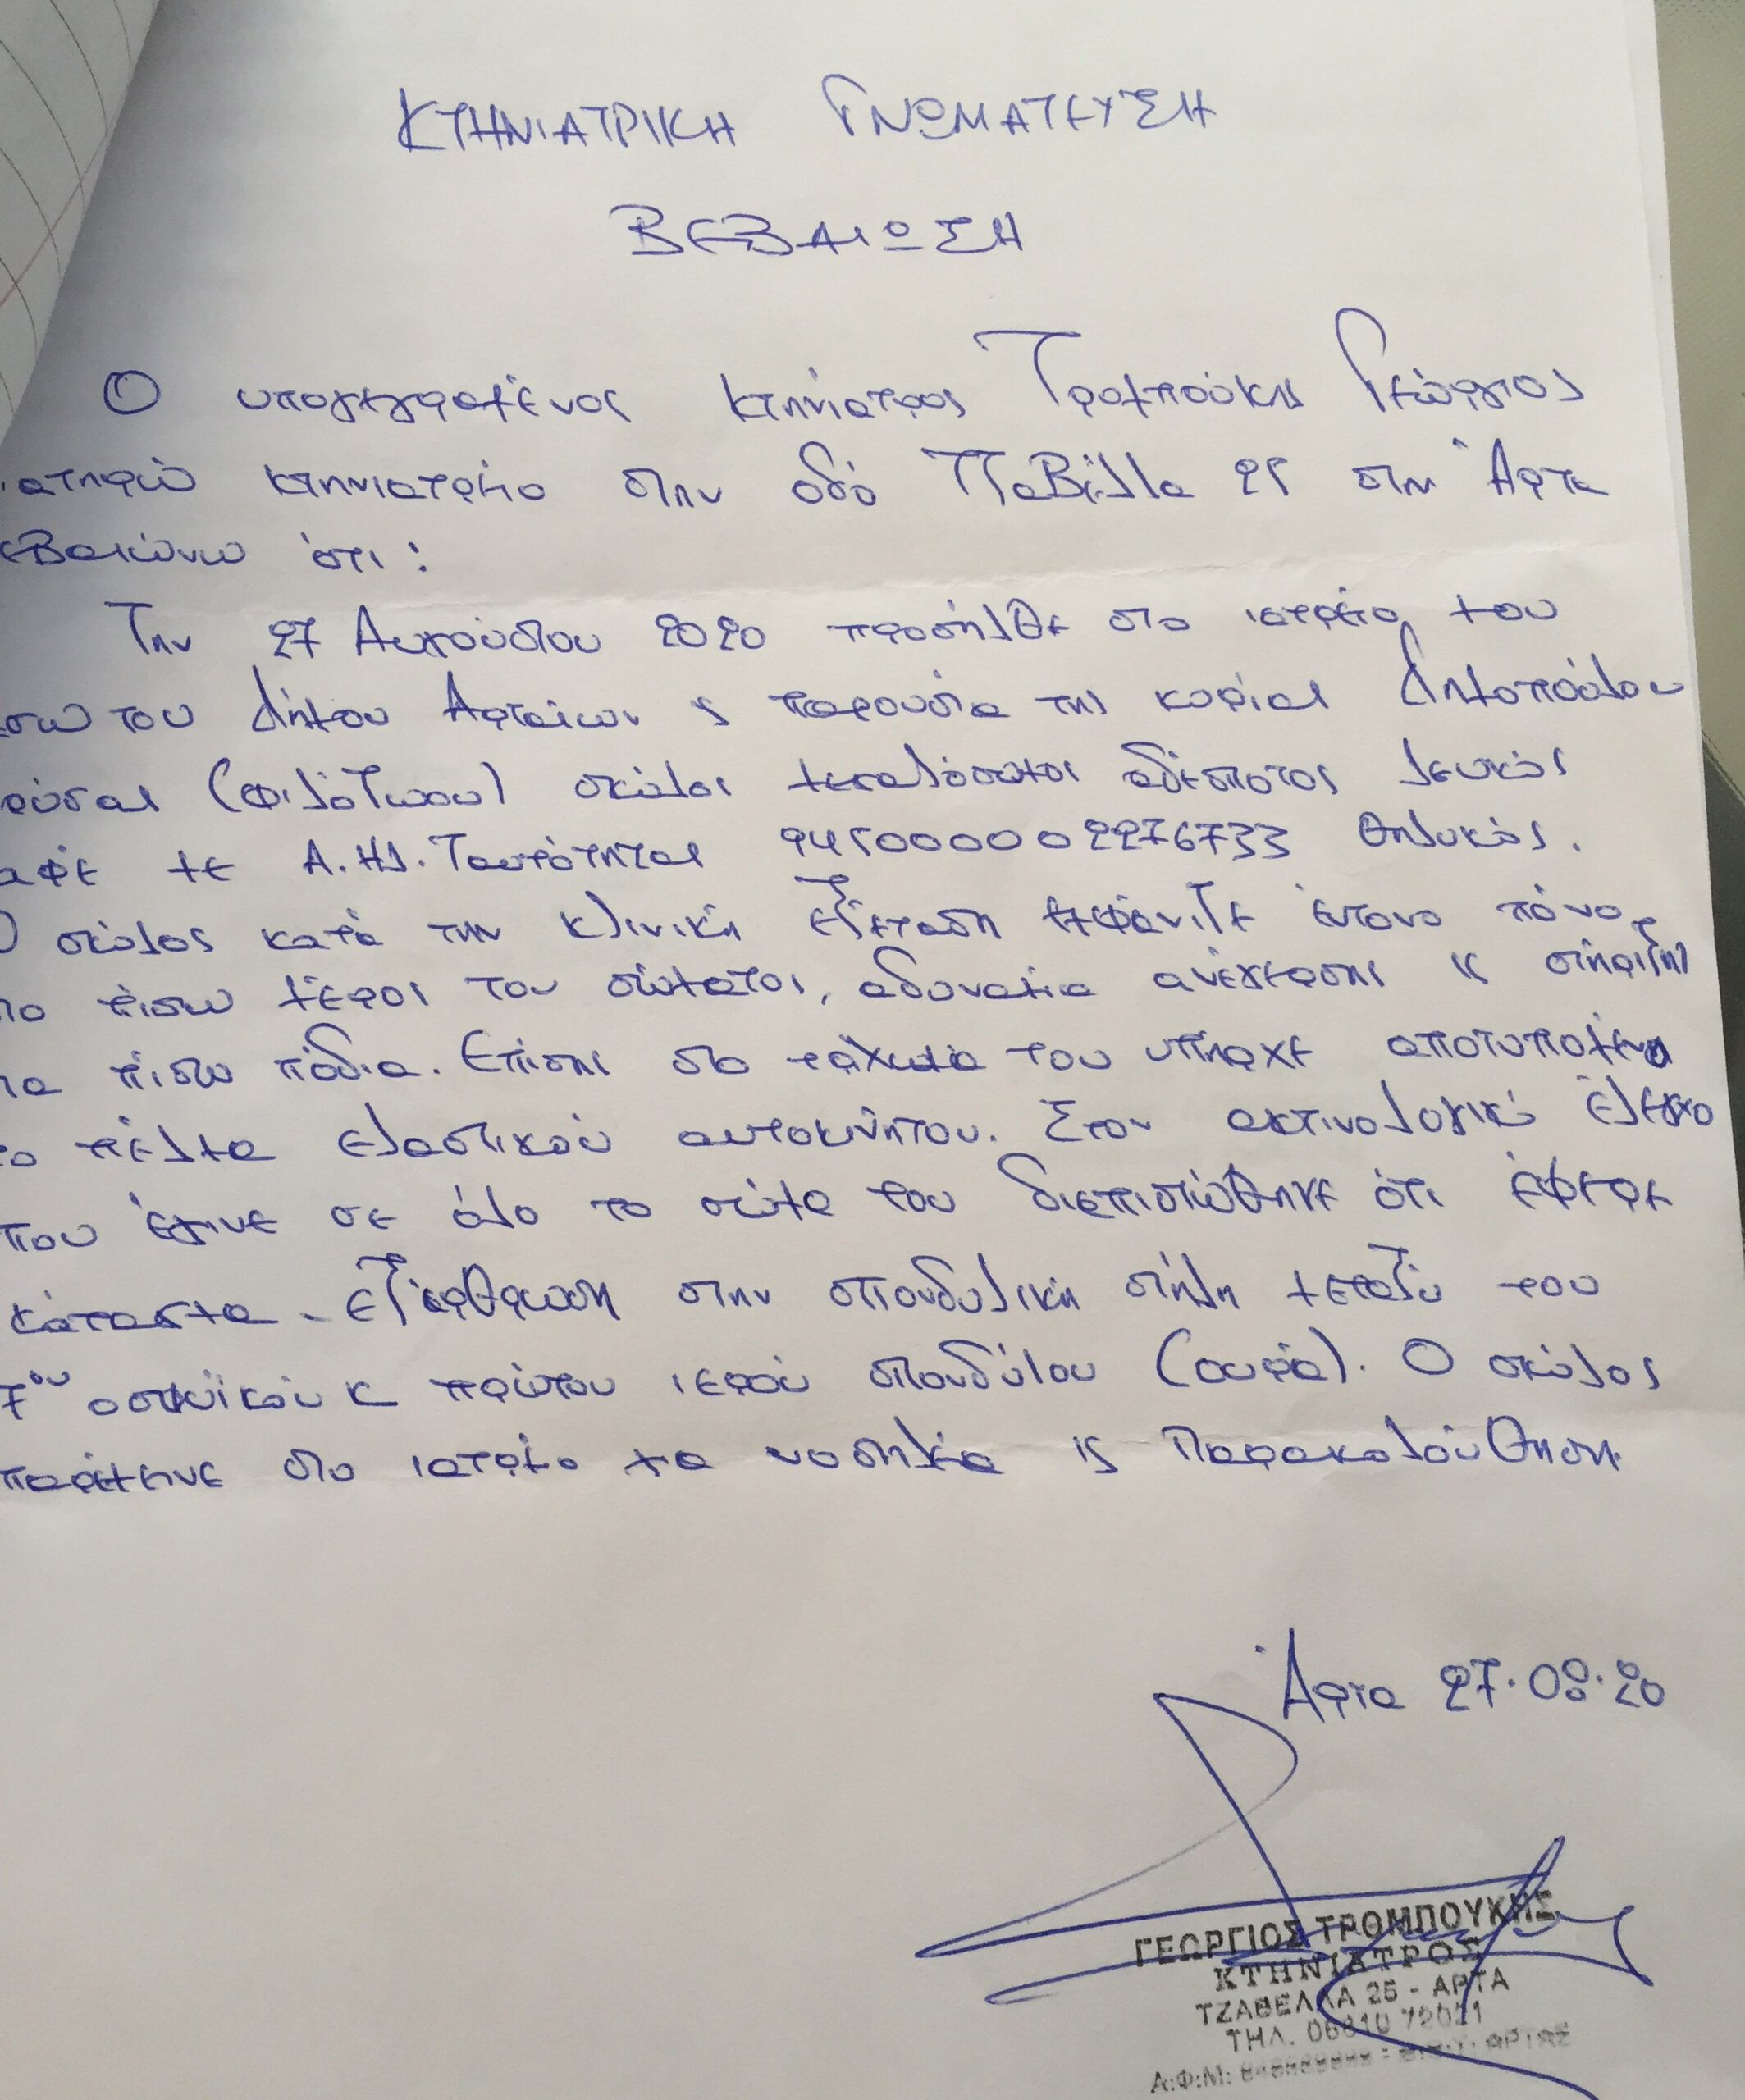 ΚΤΗΝΙΑΤΡΙΚΗ ΓΝΩΜΑΤΕΥΣΗ
ΒΕΒΑΙΩΣΗ
Ο υπογεγραμένος κτηνίατρος Τρομπούκης Γεώργιος
ατηρώ κτηνιατρείο στην οδό Τζαβέλλα 25 στην Άρτα
εβαιώνω ότι:
Την 27 Αυγούστου 2020 προσήλθε στο ιατρείο μου
έσω του Δήμου Αρταίων & παρουσία της κυρίας Δημοπούλου
ρύσας (φιλόζωου) σκύλος μεγαλόσωμος αδέσποτος λευκός
αφέ με Α.Ηλ.Ταυτότητας 945000002276733 θηλυκός.
Ο σκύλος κατά την κλινική εξέταση εμφάνιζε έντονο πόνο
το πίσω μέρος του σώματος, αδυναμία ανέγερσης & στήριξης
τα πίσω πόδια. Επίσης στο τρίχωμα του υπήρχε αποτυπομένο
το πέλμα ελαστικού αυτοκινήτου. Στον ακτινολογικό έλεγχο
που έγινε σε όλο το σώμα του διεπιστώθηκε ότι έφερε
κάταγμα - εξάρθρωση στην σπονδυλική στήλη μεταξύ του
7ου οσφυϊκού κ πρώτου ιερού σπονδύλου (ουρά). Ο σκύλος
παρέμεινε στο ιατρείο για νοσηλεία & παρακολούθηση.
Άρτα 27.08.20
ΓΕΩΡΓΙΟΣ ΤΡΟΜΠΟΥΚΗΣ
ΚΤΗΝΙΑΤΡΟΣ
ΤΖΑΒΕΛΛΑ 25 - ΑΡΤΑ
ΤΗΛ. 06810 72021
Α.Φ.Μ: ΑΡΤΑΣ